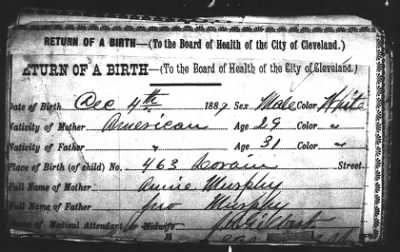 RETURN OF A BIRTH—(To the Board of Health of the City of Cleveland.)
ETURN OF A BIRTH—(To the Board of Health of the City of Cleveland.)
Date of Birth Dec 4th 1889 Sex Male Color White
Nativity of Mother American Age 29 Color "
Nativity of Father " Age 31 Color "
Place of Birth (of child) No. 463 Lorain Street
Full Name of Mother Annie Murphy
Full Name of Father Jno Murphy
Name of Medical Attendant or Midwife